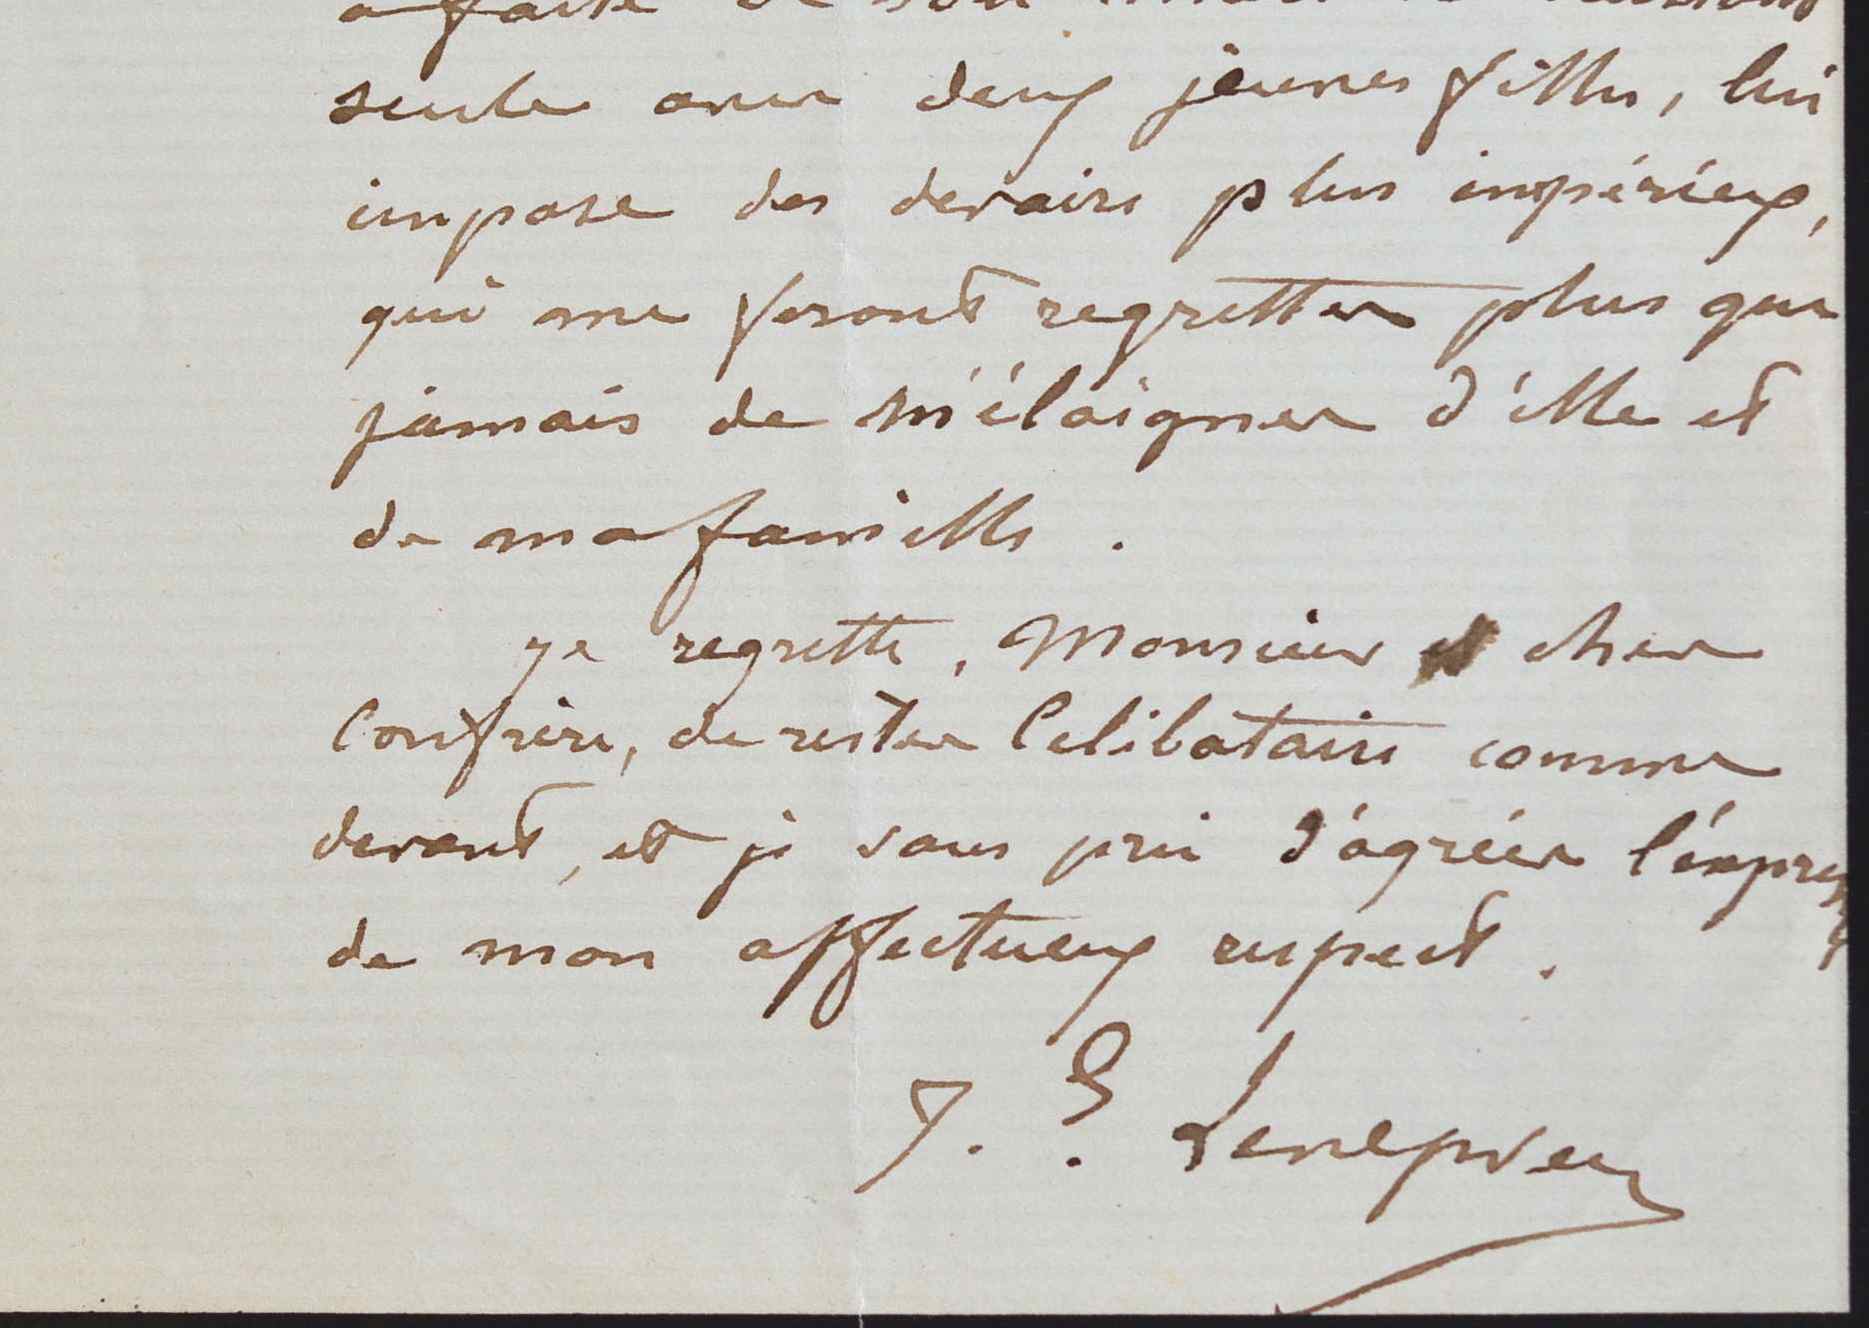 seule avec deux jeunes filles, lui
impose des devoirs plus impérieux,
qui me feront regretter plus que
jamais de m'éloigner d'elle et
de ma famille.
Je regrette, Monsieur et cher
Confrère, de rester Celibataire comme
devant, et je vous prie d'agréer l'expres
de mon affectueux respect.
J. E. Lenepveu